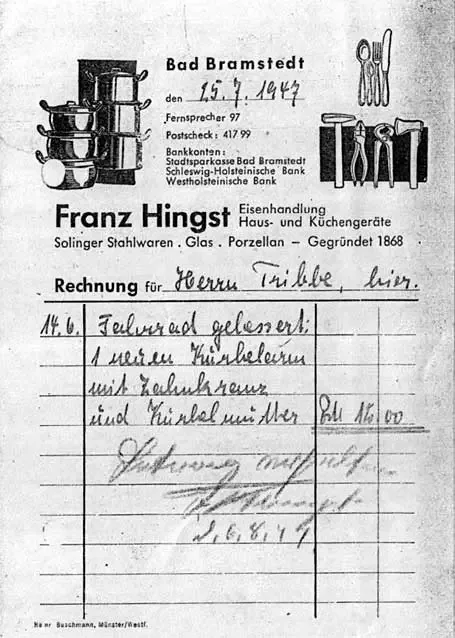 Bad Bramstedt
den 25.7.1947
Fernsprecher 97
Postscheck: 417 99
Bankkonten:
Stadtsparkasse Bad Bramstedt
Schleswig-Holsteinische Bank
Westholsteinische Bank
Franz Hingst Eisenhandlung
Haus- und Küchengeräte
Solinger Stahlwaren . Glas . Porzellan – Gegründet 1868
Rechnung für Herrn Tribbe, hier.
14.6. Fahrrad
1 neuen Kurbelarm
mit Zahnkranz
und
d. 6.8.47
Heinr Buschmann, Münster/Westf.